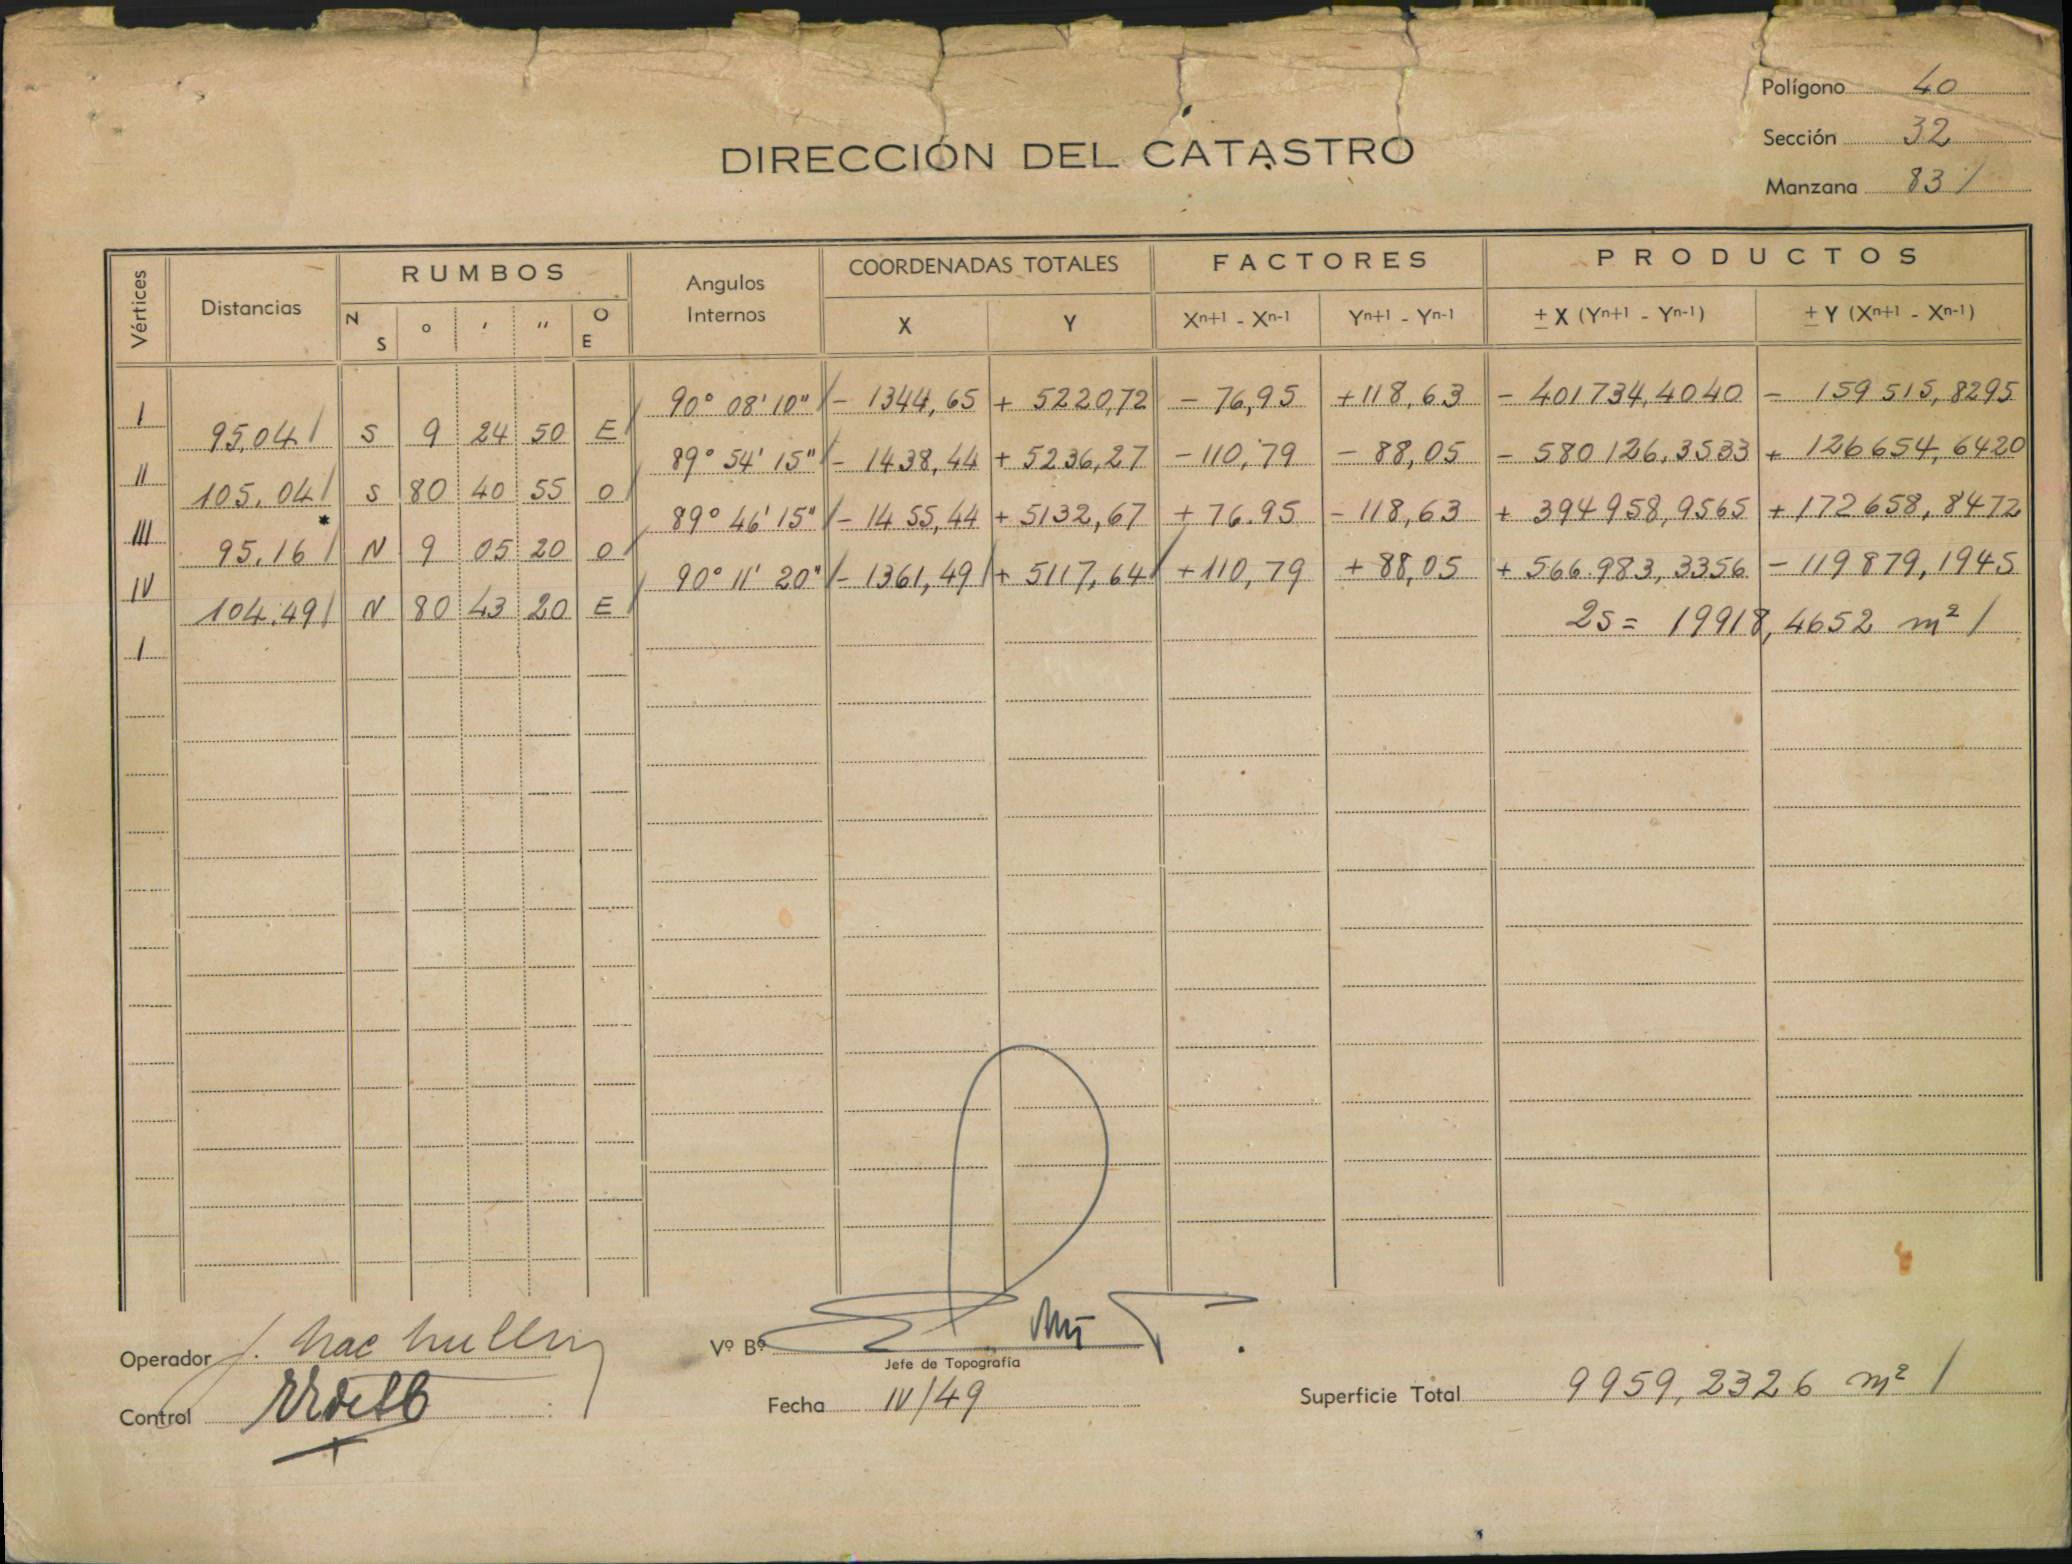 Polígono 40
Sección 32
Manzana 83 /
DIRECCIÓN DEL CATASTRO
Vértices Distancias RUMBOS Angulos Internos COORDENADAS TOTALES FACTORES PRODUCTOS
N S ° ' '' O E X Y Xn+1 - Xn-1 Yn+1 - Yn-1 ± X (Yn+1 - Yn-1) ± Y (Xn+1 - Xn-1)
I 90° 08' 10" / - 1344,65 + 5220,72 - 76,95 + 118,63 - 401734,4040 - 159515,8295
95,04 / S 9 24 50 E /
II 89° 54' 15" / - 1438,44 + 5236,27 - 110,79 - 88,05 - 580126,3533 + 126654,6420
105,04 / S 80 40 55 O /
III 89° 46' 15" / - 1455,44 + 5132,67 + 76.95 - 118,63 + 394958,9565 + 172658,8472
95,16 / N 9 05 20 O /
IV 90° 11' 20" / - 1361,49 / + 5117,64 / + 110,79 + 88,05 + 566.983,3356 - 119879,1945
104,49 / N 80 43 20 E /
2S = 19918,4652 m² /
I
Operador J. Mac
Vº Bº
Jefe de Topografía
Control
Fecha IV/49
Superficie Total 9959,2326 m² /